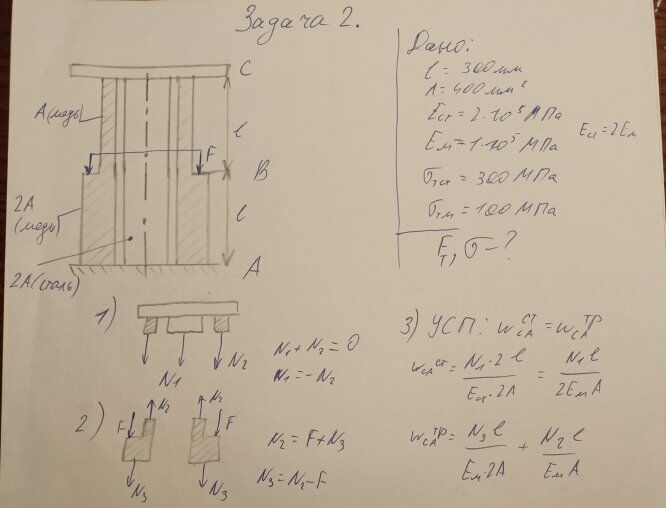 Задача 2.
Дано:
l = 300 мм
A = 400 мм²
Eст = 2·10⁵ МПа
Eм = 1·10⁵ МПа
Eст = 2Eм
σтст = 300 МПа
σтм = 100 МПа
Fт, σ = ?
C
A(медь)
l
F
B
2A
(медь)
l
A
2A(сталь)
1)
N1
N2
N1 + N2 = 0
N1 = -N2
2)
F
N2
N2
F
N3
N3
N2 = F + N3
N3 = N2 - F
3) УСП: wCAст = wCAтр
wCAст = N1·2l / Eст·2A = N1l / 2EмA
wCAтр = N3l / Eм·2A + N2l / EмA